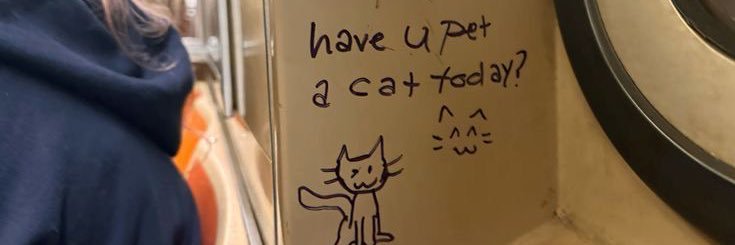 have u pet
a cat today?